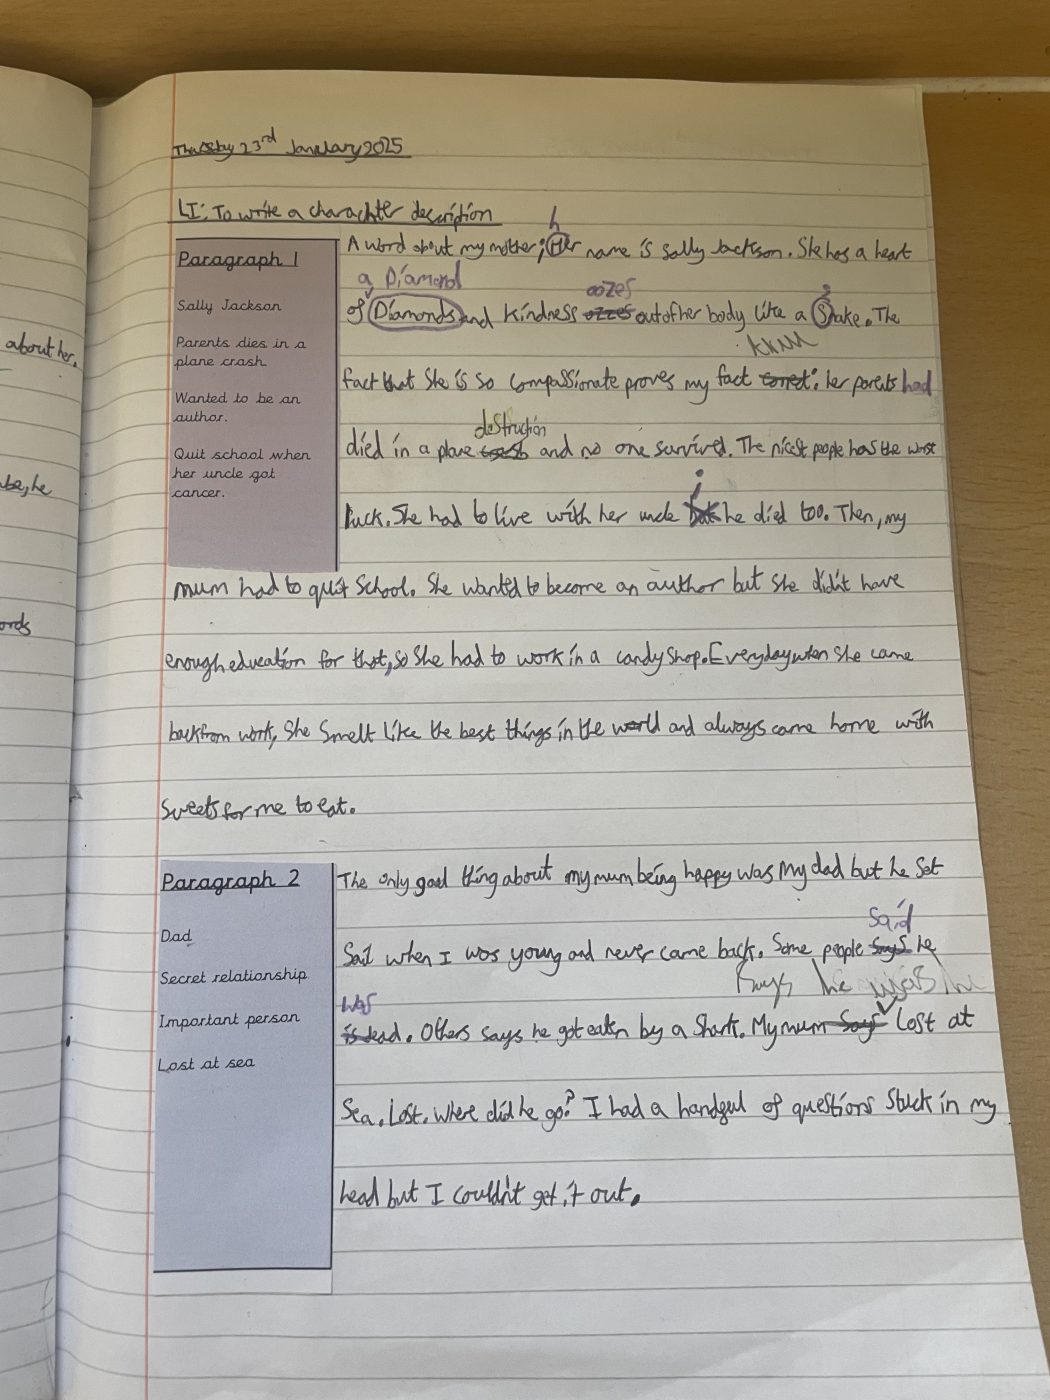 Thursday 23rd January 2025
LI: To write a charachter description
about her.
be, he
ords
Paragraph 1
Sally Jackson
Parents dies in a
plane crash.
Wanted to be an
author.
Quit school when
her uncle got
cancer.
h
A word about my mother; Her name is Sally Jackson. She has a heart
a Diamond
oozes
s
of Diamonds and kindness ozzes out of her body like a Snake. The
fact that she is so compassionate proves my fact correct: her parents had
destruction
died in a plane crash and no one survived. The nicest people has the worst
luck. She had to live with her uncle but he died too. Then, my
mum had to quit school. She wanted to become an author but she didn't have
enough education for that, so she had to work in a candy shop. Everyday when she came
back from work, she smelt like the best things in the world and always came home with
sweets for me to eat.
Paragraph 2
Dad
Secret relationship
Important person
Lost at sea
The only good thing about my mum being happy was my dad but he set
said
sail when I was young and never came back. Some people says he
says he was
was
is dead. Others says he got eaten by a shark. My mum says lost at
sea. Lost. Where did he go? I had a handful of questions stuck in my
head but I couldn't get it out.